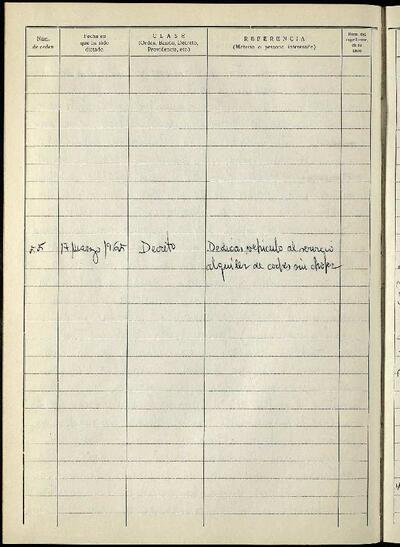 Núm. de orden
Fecha en que ha sido dictado
CLASE
(Orden, Bando, Decreto, Providencia, etc.)
REFERENCIA
(Materia o persona interesada)
Núm. del expediente, en su caso
17 marzo 1965
Decreto
Dedicar vehículo al servicio
alquiler de coches sin chófer